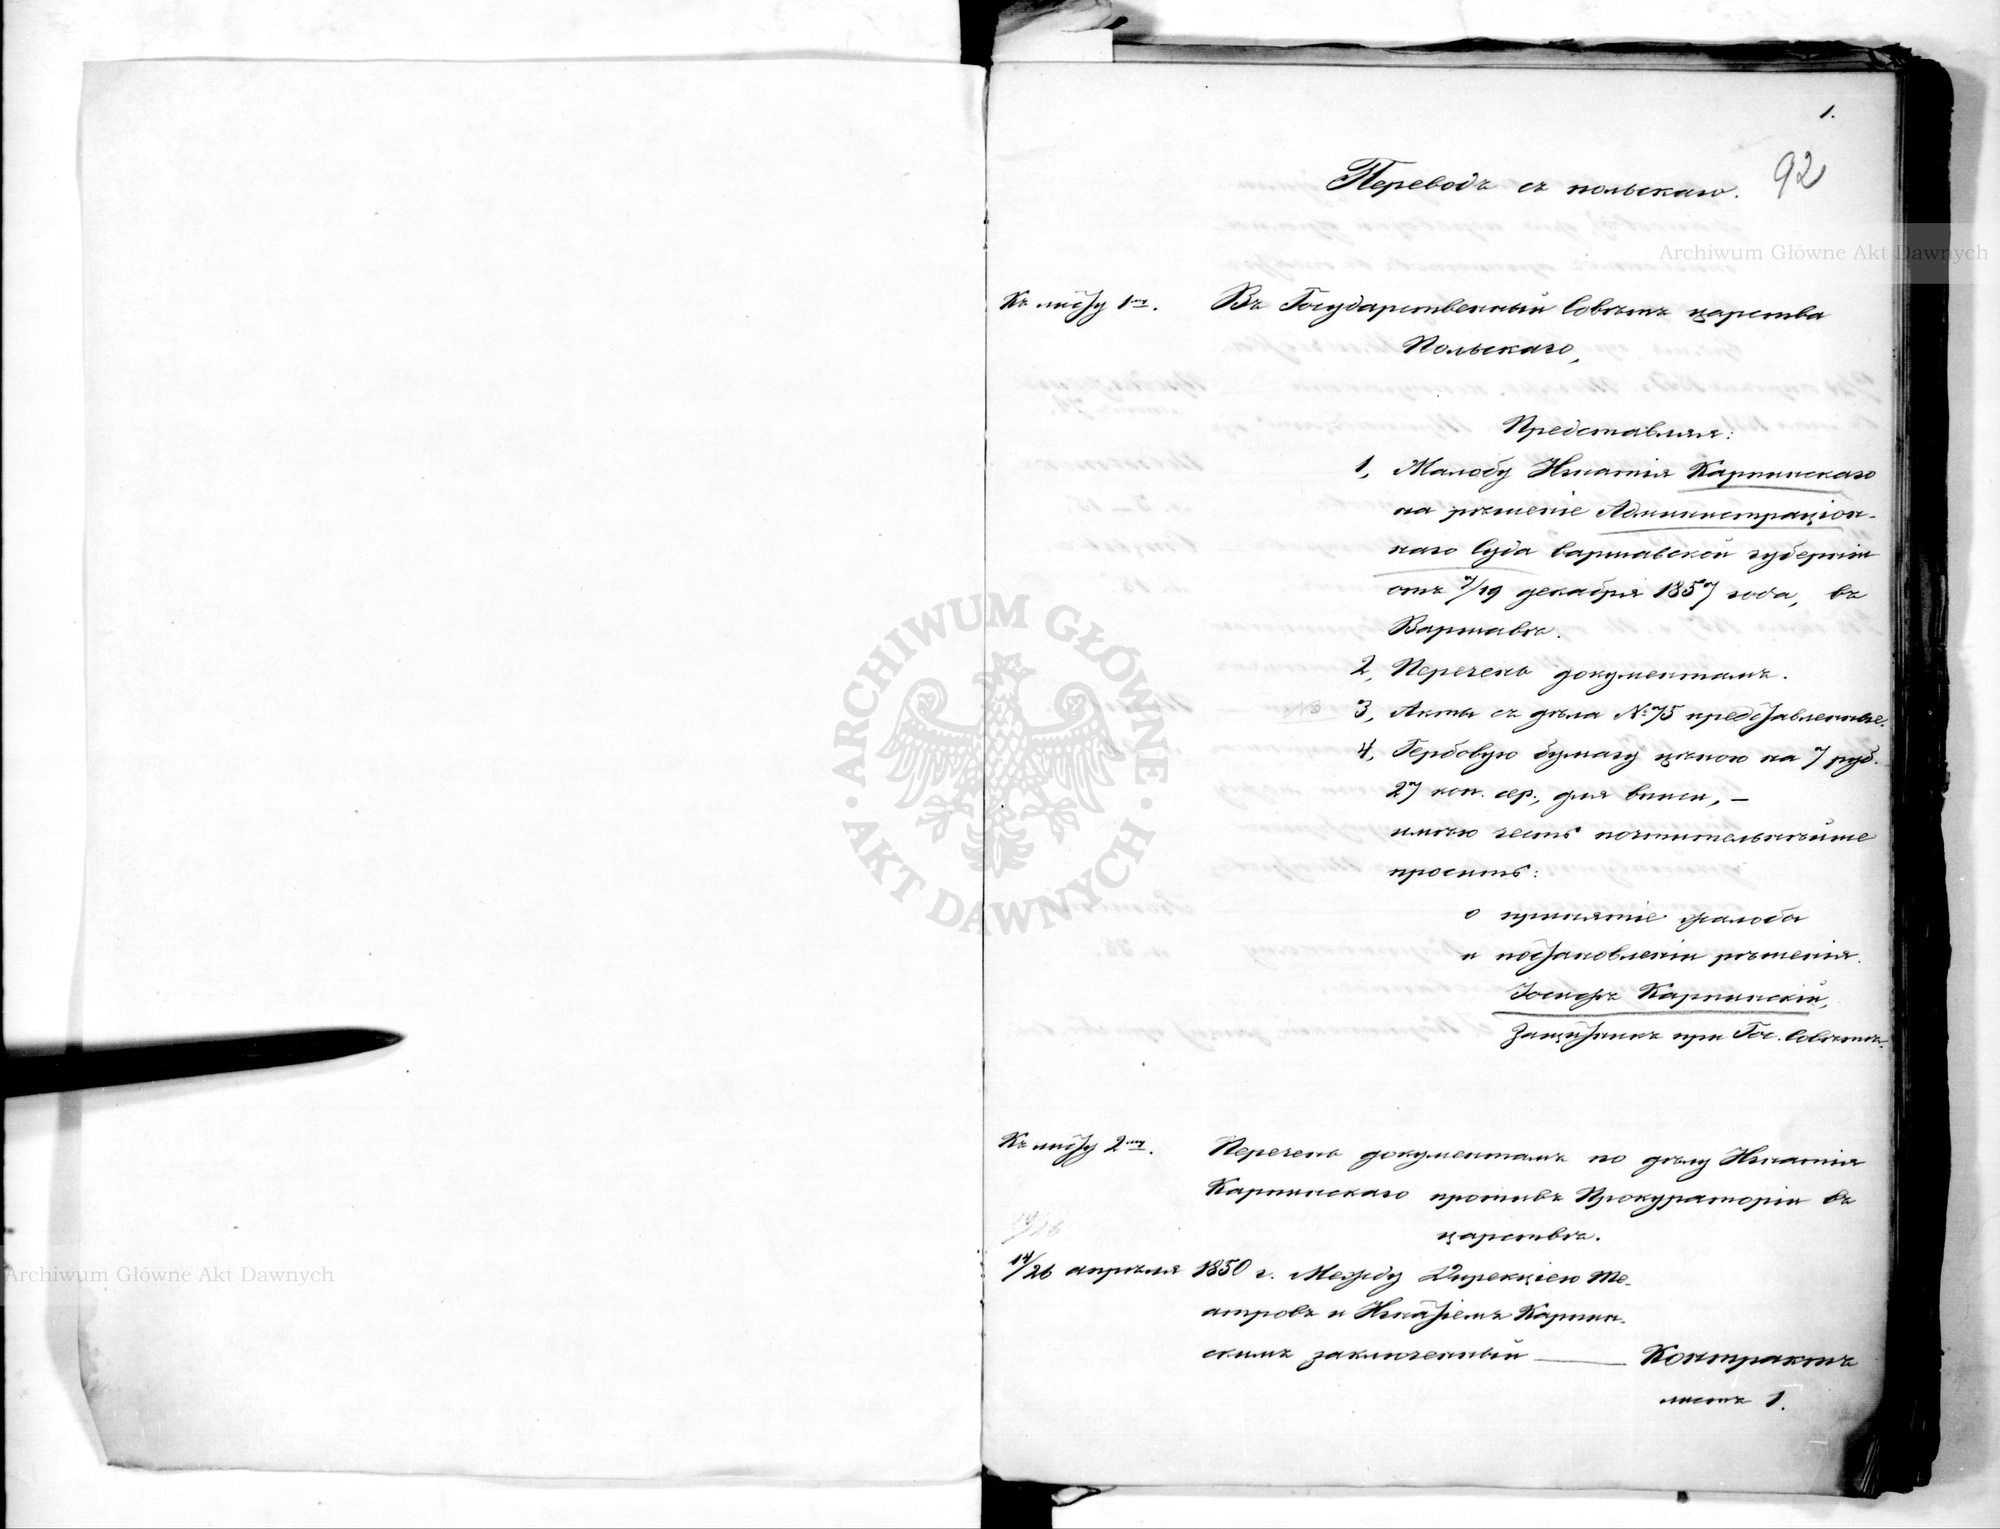 1.
92
Переводъ съ польскаго.
Къ листу 1му.
Въ Государственный Совѣтъ царства
Польскаго,
Представляя:
1, Жалобу Игнатія Карпинскаго
на рѣшеніе Администраціон-
наго Суда варшавской губерніи
отъ 7/19 декабря 1857 года, въ
Варшавѣ.
2, Перечень документамъ.
3, Акты съ дѣла № 75 представленные.
4, Гербовую бумагу цѣною на 7 руб.
27 коп. сер., для вписи, —
имѣю честь почтительнѣйше
просить:
о принятіе жалобы
и постановленіи рѣшенія.
Іосифъ Карпинскій,
Защитникъ при Гос. Совѣтѣ.
Къ листу 2му.
Перечень документамъ по дѣлу Игнатія
Карпинскаго противъ Прокураторіи въ
царствѣ.
14/26
14/26 апрѣля 1850 г. Между Дирекціею Те-
атровъ и Игнатіемъ Карпин-
скимъ заключенный — Контрактъ
листъ 1.
Archiwum Główne Akt Dawnych
ARCHIWUM GŁÓWNE
AKT DAWNYCH
Archiwum Główne Akt Dawnych